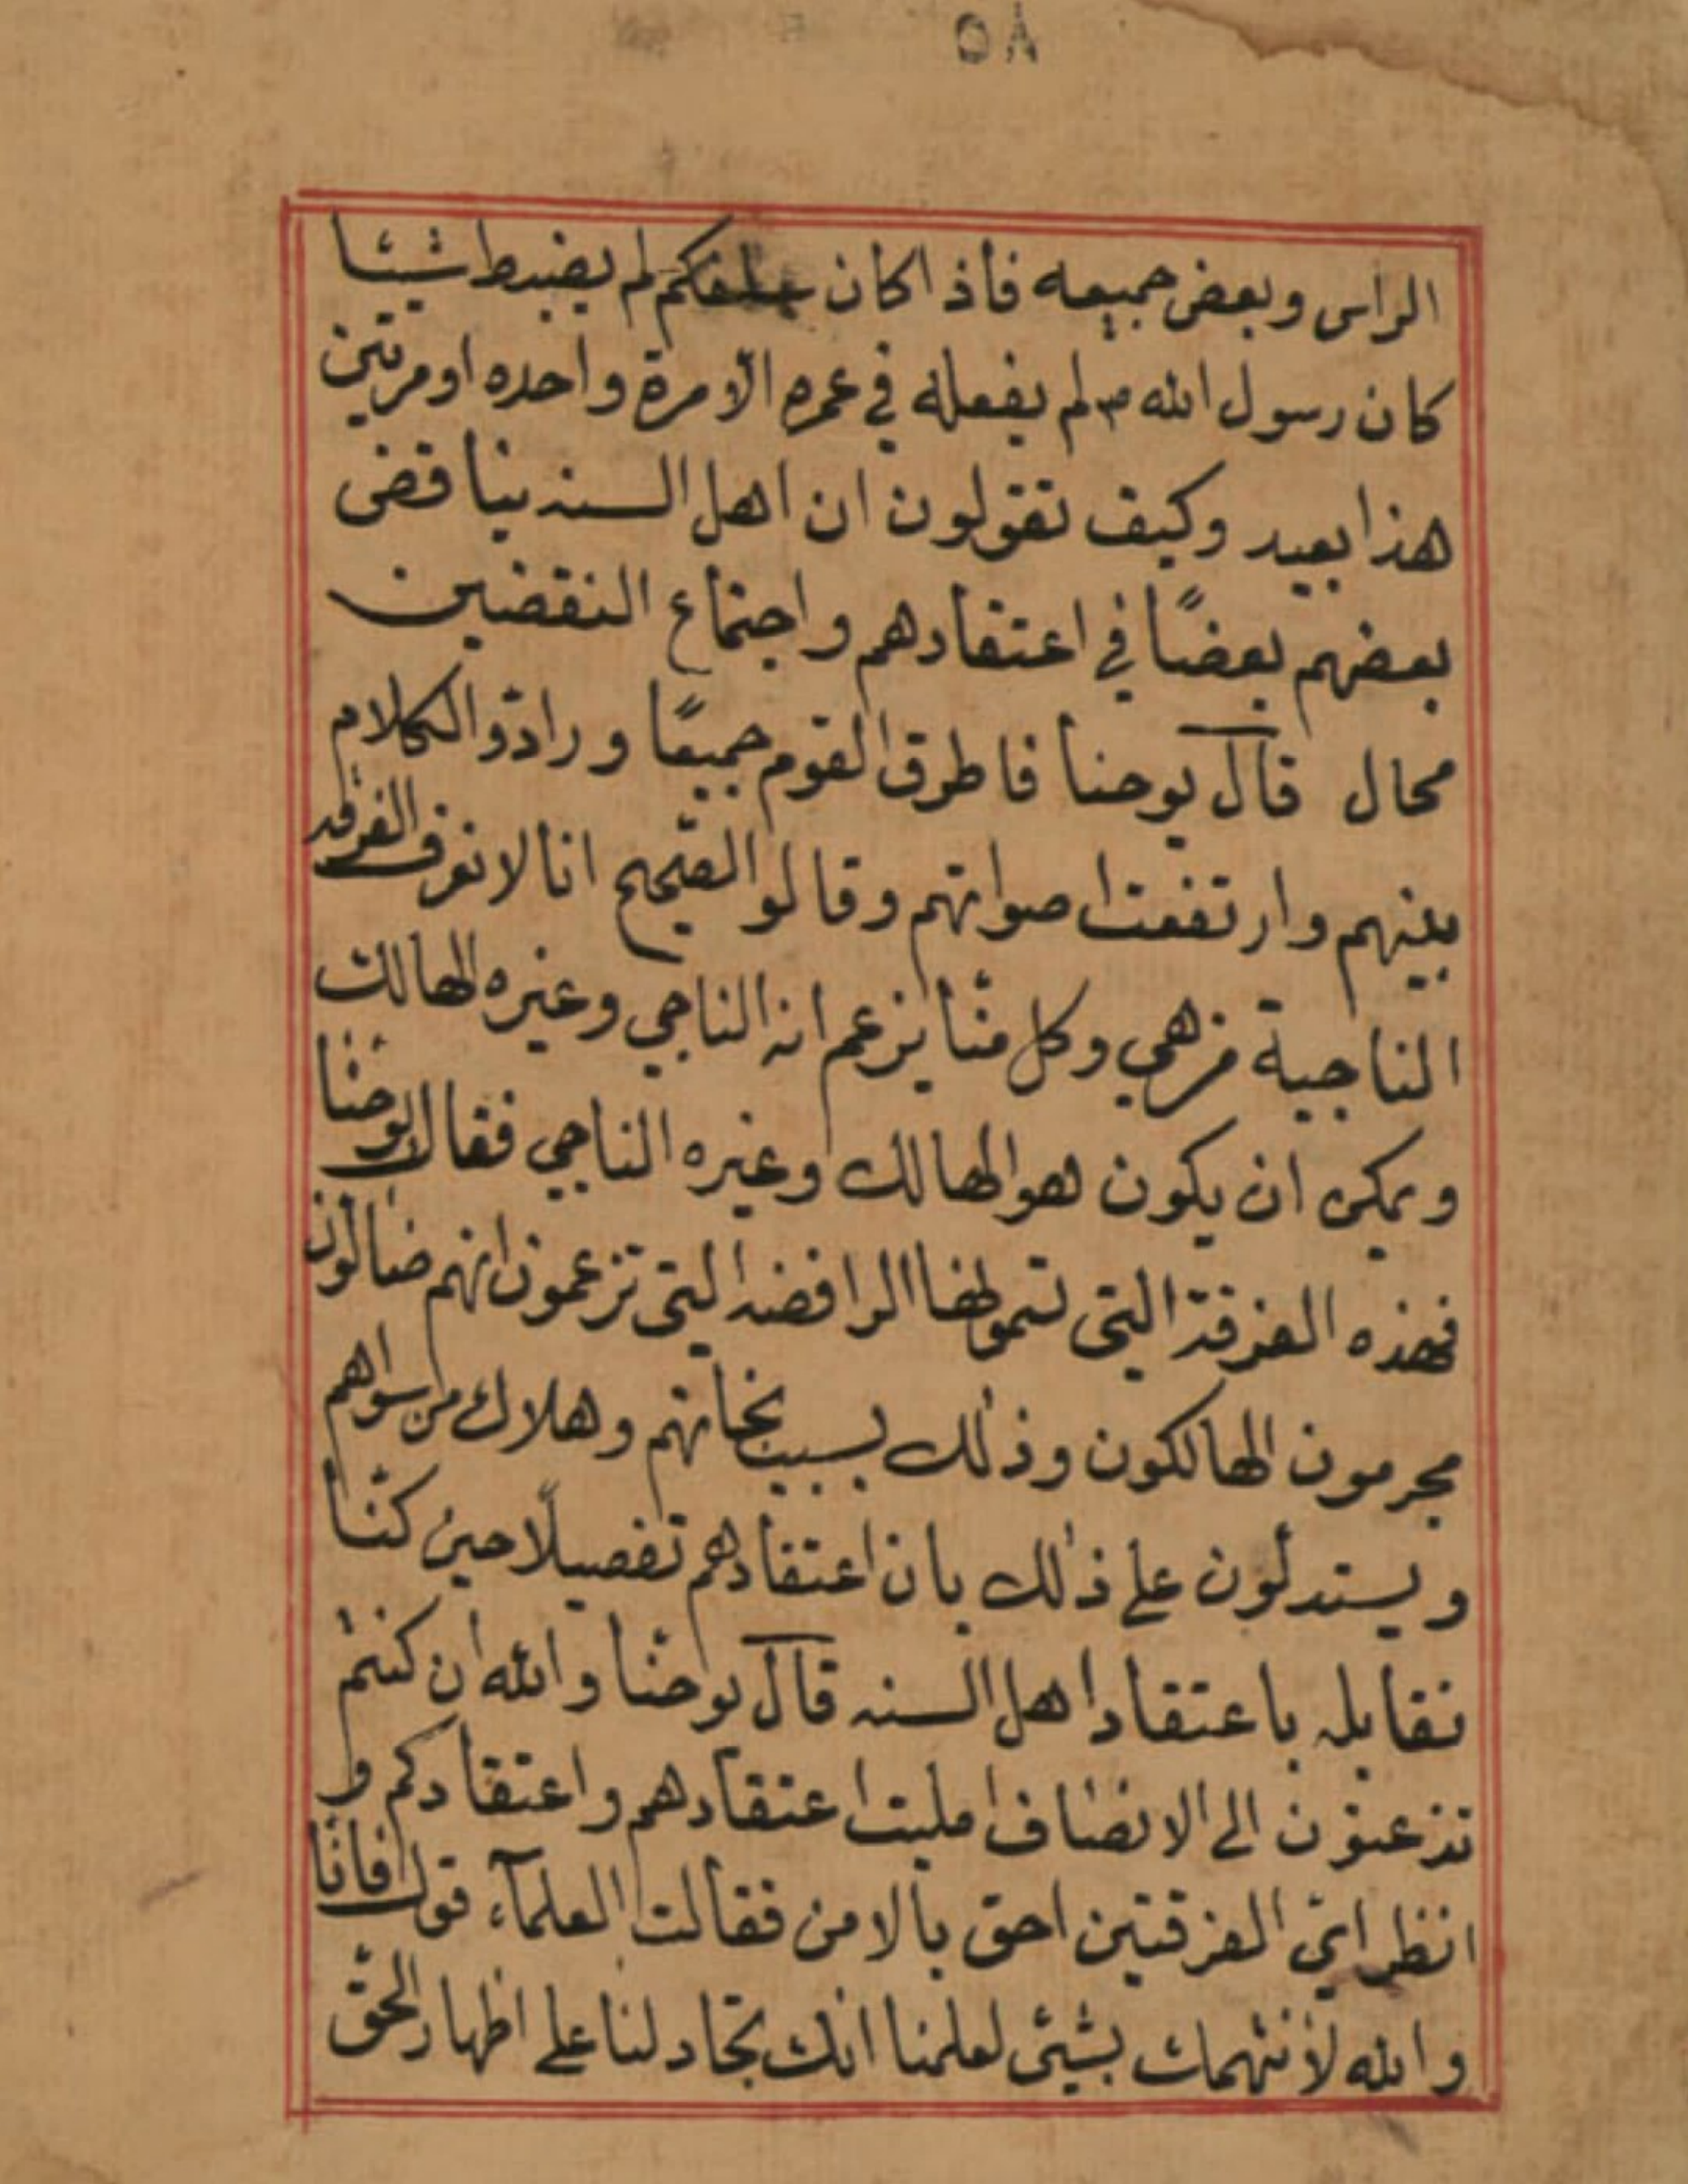 ٥٨
الراس وبعض جميعه فأذ اكان لم يضبط شيئا
كان رسول الله ص لم يفعله في عمره الا مرة واحده او مرتين
هذا بعيد وكيف تقولون ان اهل السنه يناقض
بعضهم بعضًا في اعتقادهم واجتماع النقضين
محال قال يوحنا فاطرق القوم جميعًا ورادّو الكلام
بينهم وارتفعت اصواتهم وقالو الصّحيح انا لا نعرف الفرقه
الناجية من هي وكل منّا يزعم انه الناجي وغيره الهالك
ويمكن ان يكون هو الهالك وغيره الناجي فقال يوحنّا
فهذه الفرقة التي تسموها الرافضه التي تزعمون انهم ضالون
مجرمون الهالكون وذلك بسبب نجاتهم وهلاك من سواهم
ويستدلّون على ذلك بان اعتقادهم تفصيلًا حين كنّا
نقابله باعتقاد اهل السنه قال يوحنّا والله ان كنتم
تذعنون الى الانصاف امليت اعتقادهم واعتقادكم و
انظر ايّ الفرقتين احق بالامن فقالت العلمآء قول فانّا
والله لا نتهمك بشيئ لعلمنا انك تجادلنا على اظهار الحقّ